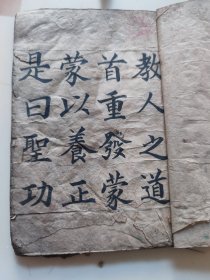 教人之道
首重發蒙
蒙以養正
是曰聖功